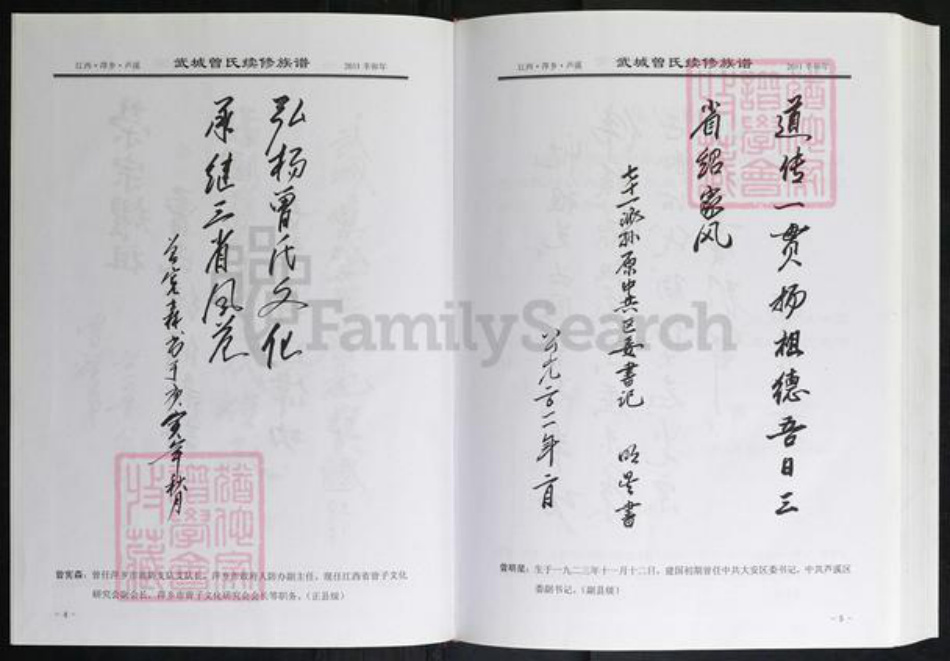 江西·萍乡·芦溪 武城曾氏续修族谱 2011年卯年
弘扬曾氏文化
承继三省风范
曾宪森书于庚寅年秋月
曾宪森：曾任萍乡市消防支队支队长，萍乡市政府人防办副主任，现任江西省曾子文化
研究会副会长，萍乡市曾子文化研究会会长等职务。（正县级）
- 4 -
江西·萍乡·芦溪 武城曾氏续修族谱 2011年卯年
道传一贯扬祖德吾日三
省绍家风
七十一派孙原中共区委书记 明星书
公元二〇一一年二月
曾明星：生于一九二三年十一月十二日，建国初期曾任中共大安区委书记，中共芦溪区
委副书记。（副县级）
- 5 -
FamilySearch